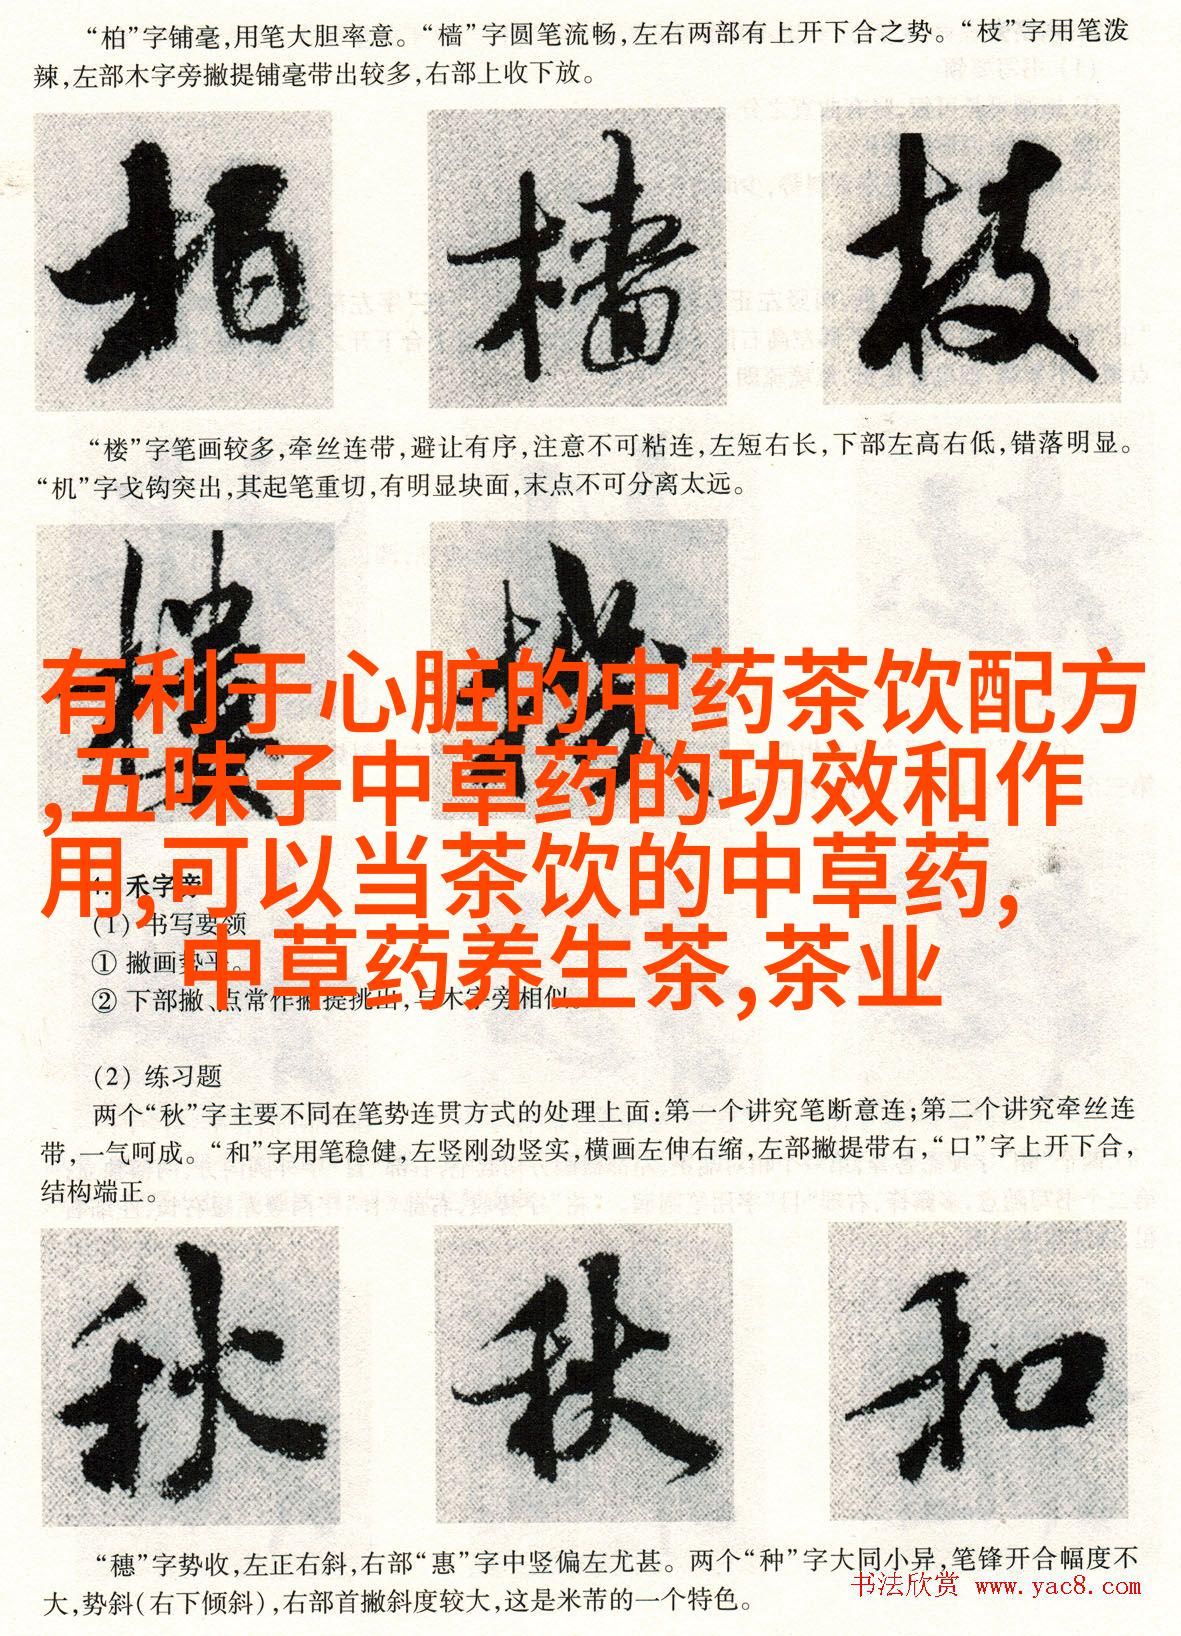 “柏”字铺毫,用笔大胆率意。“樯”字圆笔流畅,左右两部有上开下合之势。“枝”字用笔泼
辣,左部木字旁撇提铺毫带出较多,右部上收下放。
柏 樯 枝
“楼”字笔画较多,牵丝连带,避让有序,注意不可粘连,左短右长,下部左高右低,错落明显。
“机”字戈钩突出,其起笔重切,有明显块面,末点不可分离太远。
樓 機
有利于心脏的中药茶饮配方
,五味子中草药的功效和作
用,可以当茶饮的中草药,
中草药养生茶,茶业
禾字旁
(1) 书写要领
① 撇画势平。
② 下部撇、点常作撇提挑出,与木字旁相似。
(2) 练习题
两个“秋”字主要不同在笔势连贯方式的处理上面:第一个讲究笔断意连;第二个讲究牵丝连
带,一气呵成。“和”字用笔稳健,左竖刚劲竖实,横画左伸右缩,左部撇提带右,“口”字上开下合,
结构端正。
秋 秋 和
“穗”字势收,左正右斜,右部“惠”字中竖偏左尤甚。两个“种”字大同小异,笔锋开合幅度不
大,势斜(右下倾斜),右部首撇斜度较大,这是米芾的一个特色。
书法欣赏 www.yac8.com